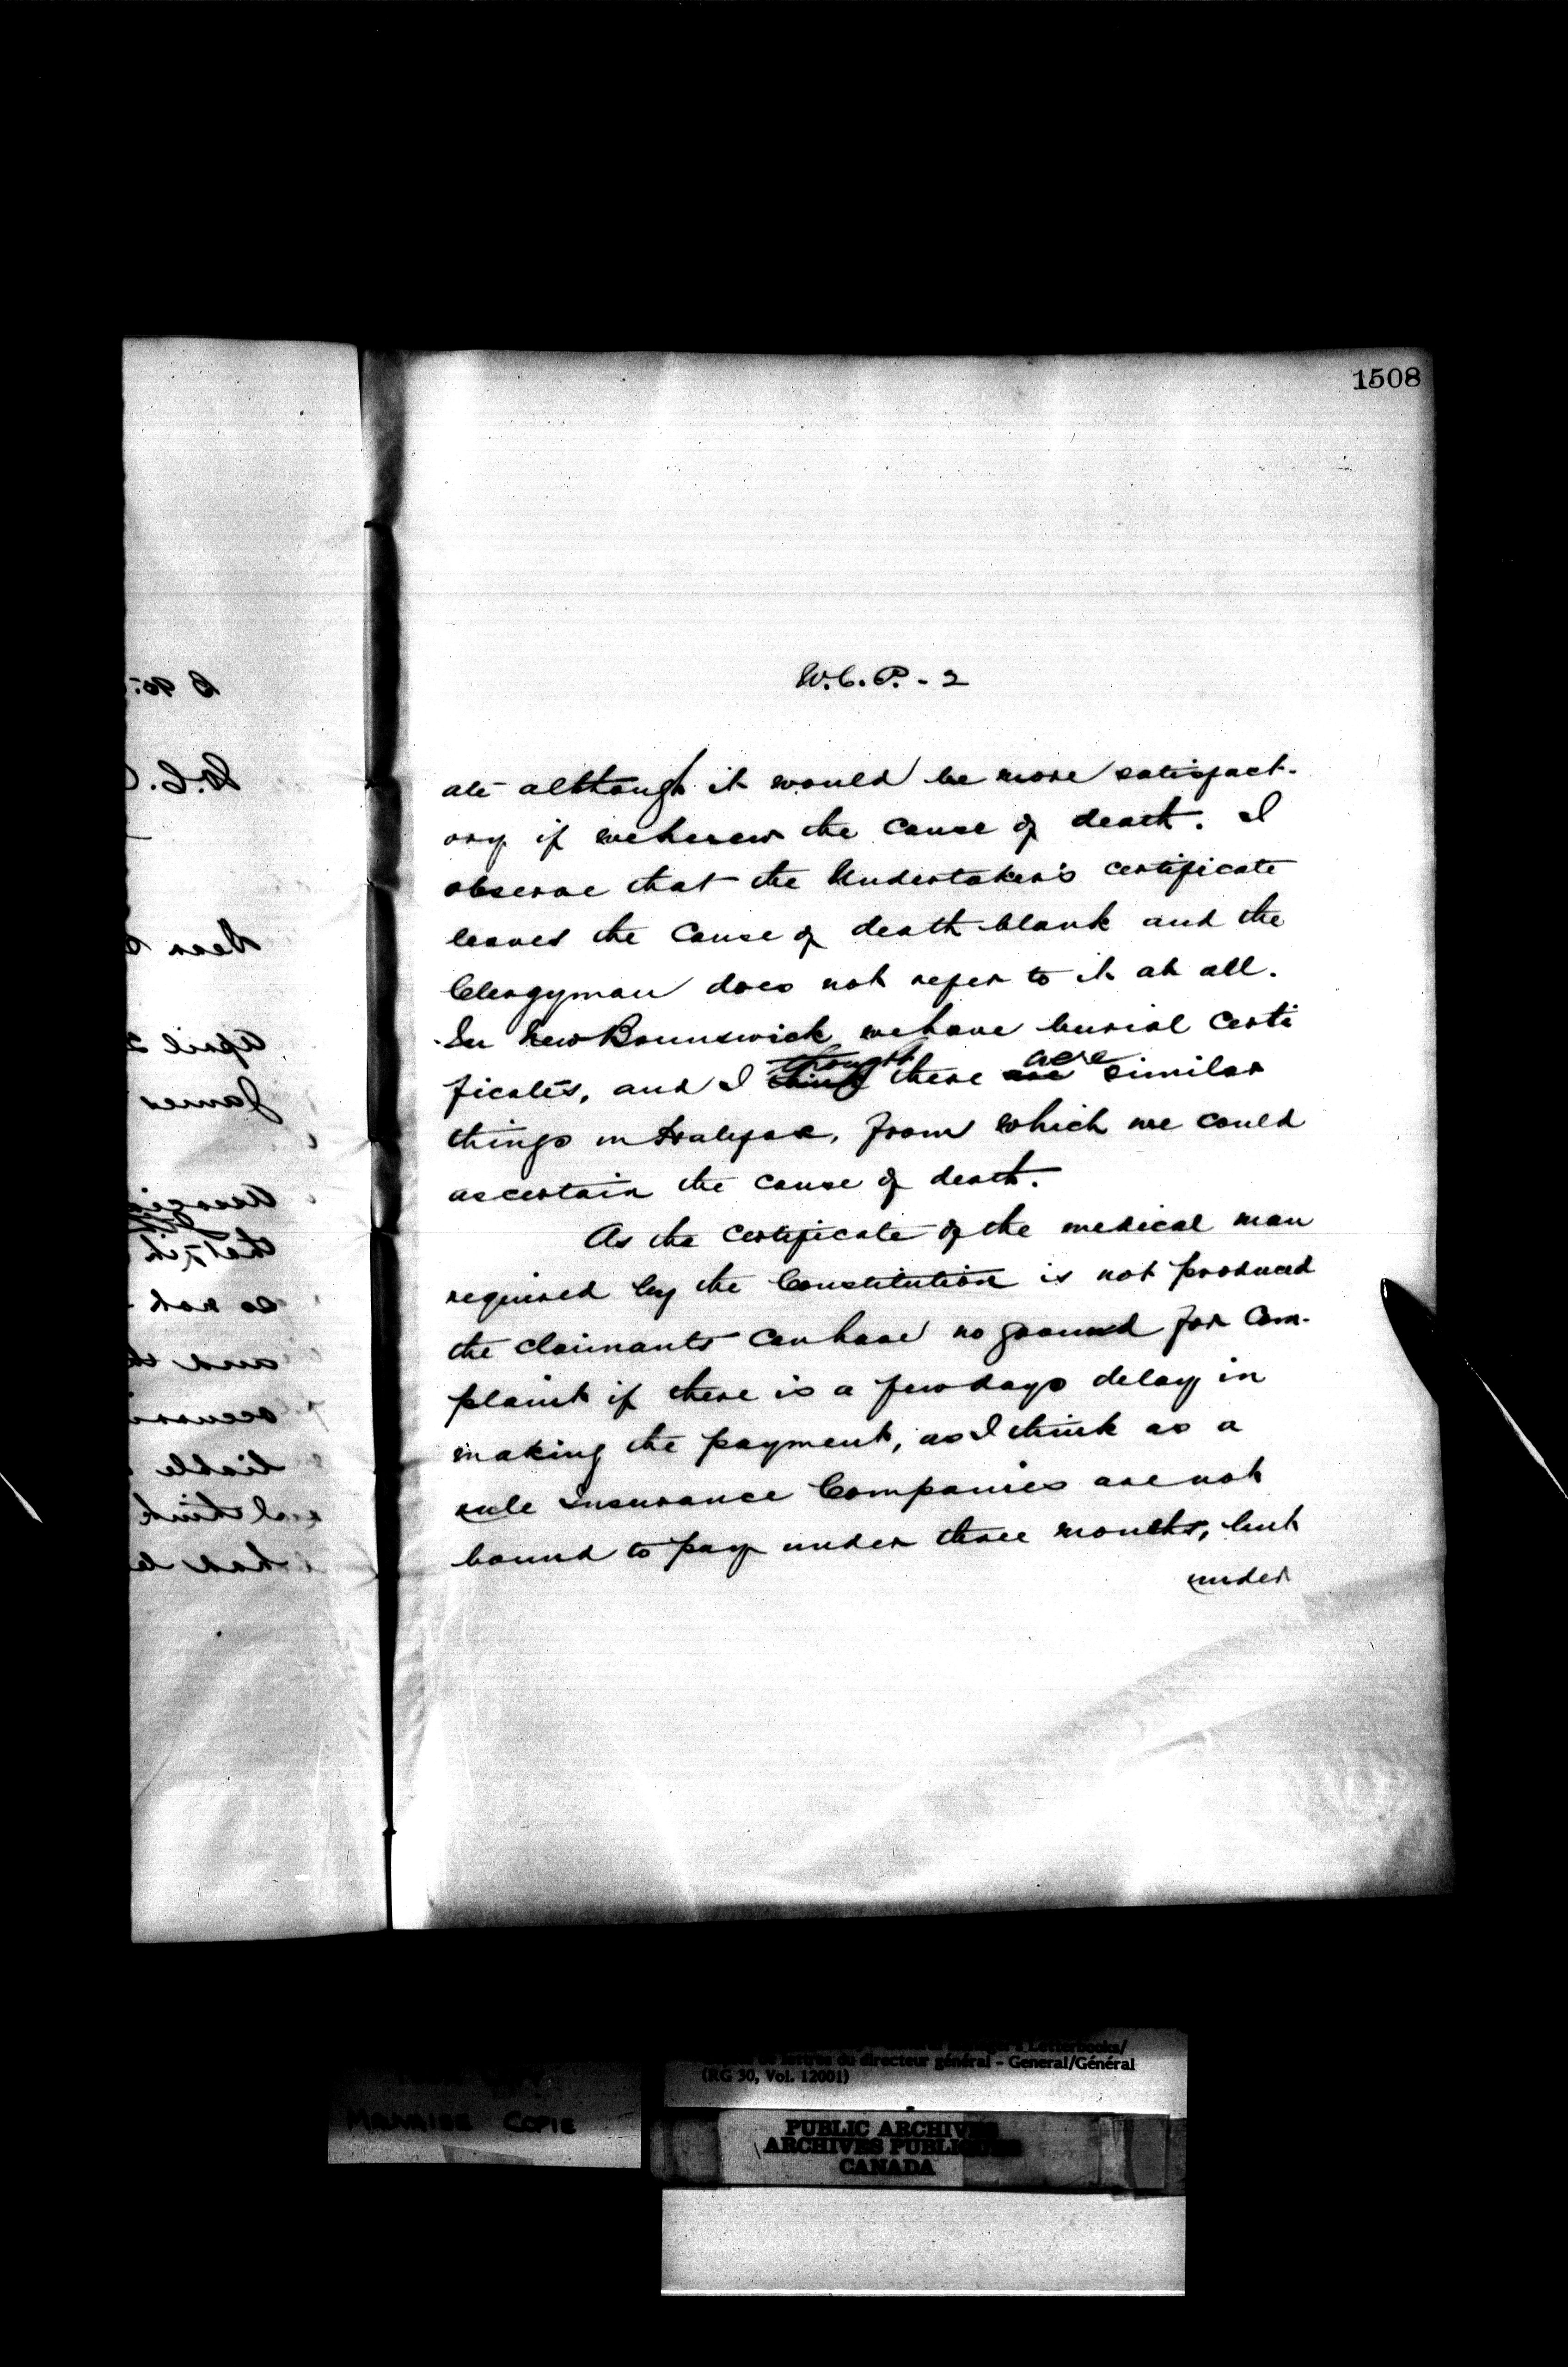 1508
W.C.P. - 2
ate although it would be more satisfact-
ory if we knew the cause of death. I
observe that the Undertaker's certificate
leaves the cause of death blank and the
Clergyman does not refer to it at all.
In New Brunswick we have burial certi
ficates, and I thought there were similar
things in Halifax, from which we could
ascertain the cause of death.
As the certificate of the medical man
required by the Constitution is not produced
the claimants can have no ground for com-
plaint if there is a few days delay in
making the payment, as I think as a
rule insurance Companies are not
bound to pay under three months, but
under
MAUVAISE COPIE
Letterbooks/
de lettres du directeur général - General/Général
(RG 30, Vol. 12001)
PUBLIC ARCHIVES
ARCHIVES PUBLIQUES
CANADA